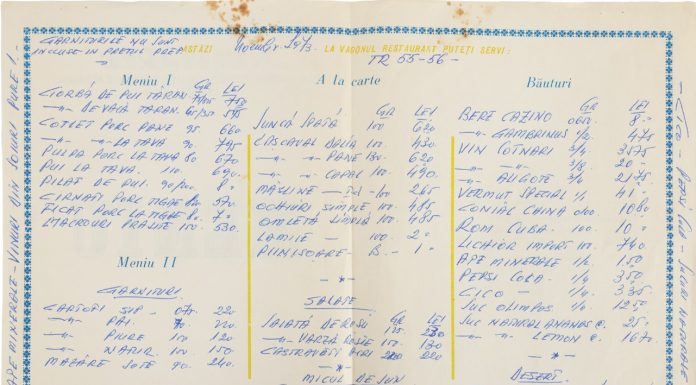 GARNITURILE NU SUNT
INCLUSE IN PRETUL PREP.
ASTĂZI
1973.
LA VAGONUL RESTAURANT PUTEȚI SERVI:
TR 55-56-
Meniu I
GR LEI
CIORBĂ DE PUI TĂRAN.
-"- DE VACĂ TARAN.
COTLET PORC PANE 90. 660
-"- -"- LA TAVA 90 795
PULPA PORC LA TAVA 80 670
PUI LA TAVA. 110. 690
PILAF DE PUI. 90/200 8=
CIRNAȚI PORC TIGAE 80. 570
FICAT PORC LA TIGAE 80. 7=
PRAJITE 100. 530.
Meniu II
GARNITURI.
CARTOFI 220
-"- PAI. 70.
-"- PIURE 100 120
-"- NATUR. 100 150.
MAZĂRE SOTE 90. 240.
A la carte
GR LEI
ȘUNCĂ SPATĂ 100. 620
100. 430.
-"- -"- PANE 620
-"- -"- CAPAC 100. 490.
MASLINE 100 - 265
OCHIURI SIMPLE 100. 485
OMLETĂ SIMPLĂ 100 - 485
LAMIIE - 100. 2=
B. - 1=
- * -
SALATE
GR LEI
SALATĂ DE ROȘII
-"- VARZĂ ROSIE 150. 130
CASTRAVEȚI ACRI 220
- * -
MICUL DEJUN
Băuturi
GR LEI
BERE CAZINO 8=
-"- GAMBRINUS 1/2. 475
VIN COTNARI 3/4 3575
-"- 3/4 20=
-"- ALIGOTE 3/4 2175
VERMUT SPECIAL 1/1 41=
CONIAC 0100 1080
ROM CUBA. 100. 10=
LICHIOR IMPORT 100. 740.
APE MINERALE 1/2 150
PEPSI COLA. 1/4 350
CICO - 1/4 335
SUC OLIMPOS 1/2 1250
SUC NATURAL ANANAS C. 25=
-"- -"- LEMON C. 1670.
- * -
DESERT.
APE MINERALE - VINURI DIN SOIURI PURE!
- CICO - PEPSI COLA - SUCURI